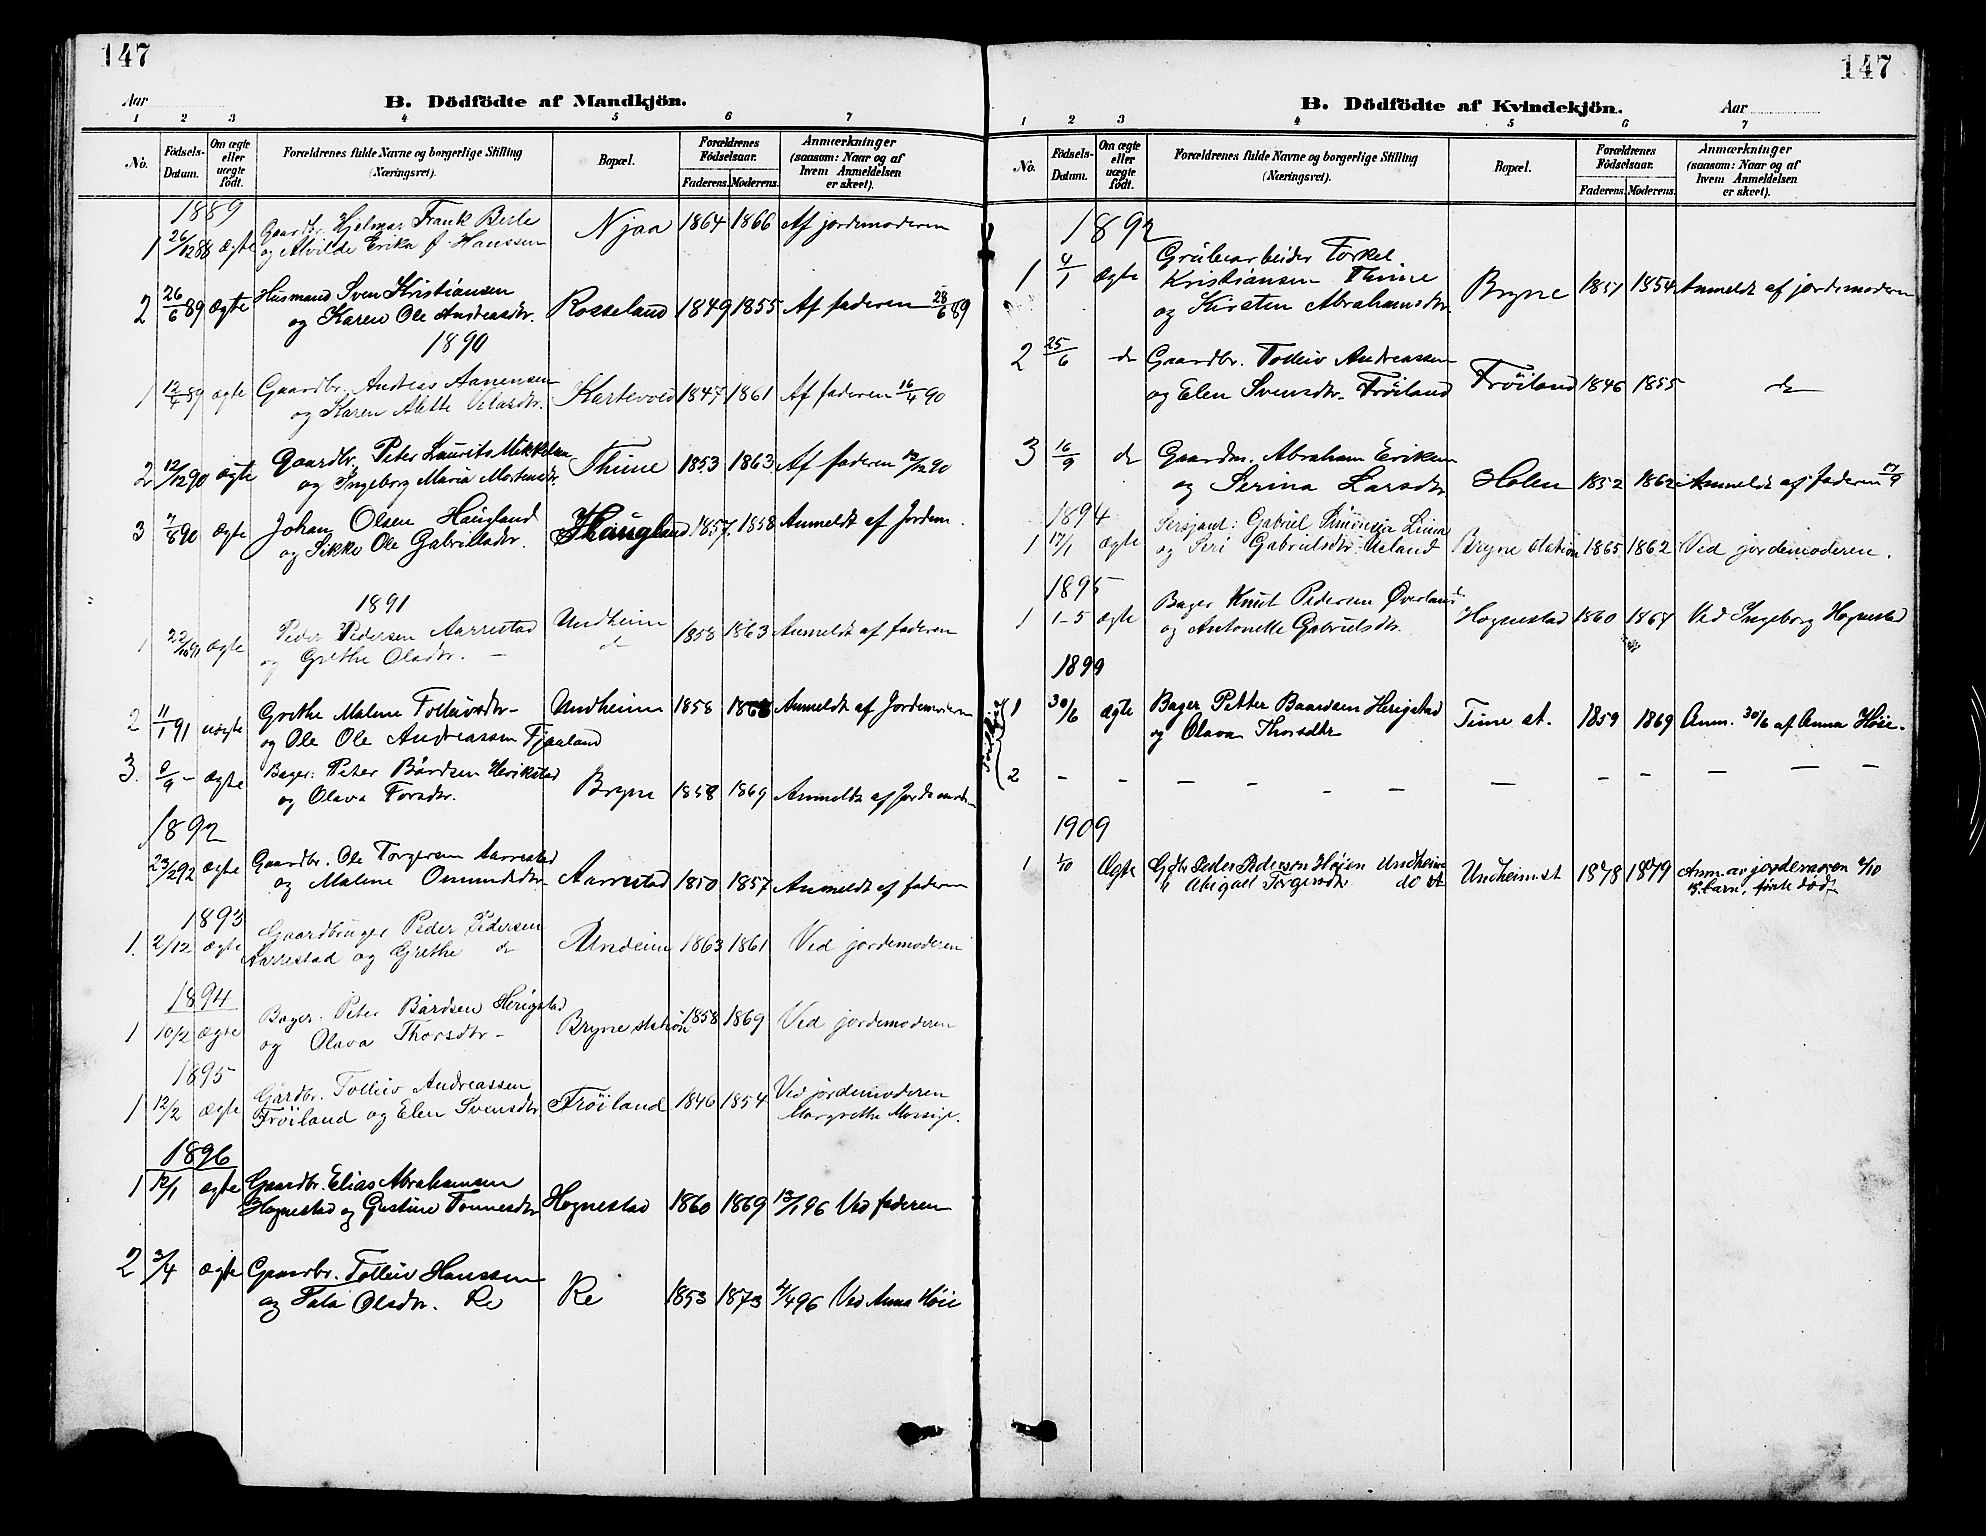 147
Aar
B. Dödfödte af Mandkjön.
1 2 3 4 5 6 7
No. Födsels-Datum. Om ægte eller uægte födt. Forældrenes fulde Navne og borgerlige Stilling (Næringsvei). Bopæl. Forældrenes Födselsaar. Faderens. Moderens. Anmærkninger (saasom: Naar og af hvem Anmeldelsen er skeet).
1889
1 26/12 88 ægte Gaardbr. Hjelmar Frank Berle Njaa 1864 1866 Af jordemoderen
og Alvilde Erika f. Hanssen
2 26/6 89 ægte Husmand Sven Kristiansen Rosseland 1849 1855 Af faderen 28/6 89
og Karen Ole Andreasdtr.
1890
1 12/4 89 ægte Gaardbr. Andreas Aanensen Kartevold 1847 1861 Af faderen 16/4 90
og Karen Alette
2 12/12 90 ægte Gaardbr. Peter Laurits Mikkelsen Thime 1853 1863 Af faderen 90
og Ingeborg Maria Mortensdtr.
3 7/8 90 ægte Johan Olsen Haugland Haugland 1857. 1858 Anmeldt af Jordem.
og Sikke Ole Gabrielsdtr.
1891
1 22/10 91 ægte Peder Pedersen Aarrestad Undheim 1858 1863 Anmeldt af faderen
og Grethe Olsdtr. — do
2 11/1 91 uægte Grethe Malene Tolleivsdtr- Undheim 1858 1868 Anmeldt af Jordemoderen
og Ole Ole Andreassen Fjaaland
3. 9/9 - ægte Bager: Peter Bårdsen Herikstad Bryne 1858 1869 Anmeldt af Jordemoder
og Olava Torsdtr.
1892
23/2 92 ægte Gaardbr. Ole Torgersen Aarrestad Aarrestad 1850 1857 Anmeldt af faderen
og Malene Osmundsdtr-
1893
1. 2/12 ægte Gaardbruger Peder Pedersen Undeim 1863 1861 Ved jordemoderen
Aarrestad og Grethe do
1894
1 10/2 ægte Bager. Peter Bårdsen Herigstad Bryne station 1858 1869 Ved jordemoderen
og Olava Thorsdtr-
1895
1 12/2 ægte Gårdbr. Tolleiv Andreassen Frøiland 1846 1854 Ved jordemoderen
Frøiland og Elen Svensdtr Margrethe Mossige.
1896
1 12/1 ægte Gaardbr. Elias Abrahamsen Hognestad 1860 1869 13/1 96 Ved faderen
Hognestad og Gustine Tønnesdtr
2 3/4 ægte Gaardbr. Tolleiv Hanssen Re 1853 1873 4/4 96 Ved Anna Høie
og Tala Olsdtr. Re
147
B. Dödfödte af Kvindekjön. Aar
1 2 3 4 5 6 7
No. Födsels-Datum. Om ægte eller uægte födt. Forældrenes fulde Navne og borgerlige Stilling (Næringsvei). Bopæl. Forældrenes Födselsaar. Faderens. Moderens. Anmærkninger (saasom: Naar og af hvem Anmeldelsen er skeet).
1892
1 4/1 ægte Grubearbeider Torkel
Kristiansen Thime Bryne 1851 1854 Anmeldt af jordemoderen
og Kirsten Abrahamsdtr.
2 25/6 do Gaardbr. Tolleiv Andreassen Frøiland 1846 1855 do
og Elen Svensdtr. Frøiland
3 16/9 do Gaardm. Abraham Eriksen Holen 1852 1862 Anmeldt af faderen 17/9
og Serina Larsdtr
1894
1 17/1 ægte Sersjant: Gabriel Simonsen Lima Bryne station 1865 1862 Ved jordemoderen.
og Seri Gabrielsdtr. Ueland
1895
1 1-5 ægte Bager Knut Pedersen Øverland Hognestad 1860 1864 Ved Ingeborg Hognestad
og Antonette Gabrielsdtr.
1899
Tvillinger
1 30/6 ægte Bager Petter Baardsen Herigstad Time st. 1859 1869 Anm. 30/6 af Anna Høie.
og Olava Thorsdtr
2 — — — — — — — —
1909
1 1/10 Ægte Gdbr Peder Pedersen Høien Undheim Undheim st 1878 1879 Anm. av jordemoren 2/10
" Abigael Torgersdtr do st 1ste barn, første død